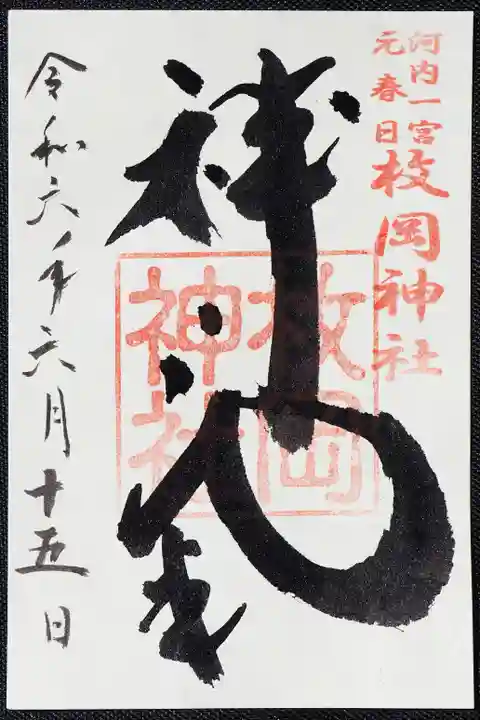 河内一宮
元春日
枚岡神社
祥氣
枚岡
神社
令和六年六月十五日